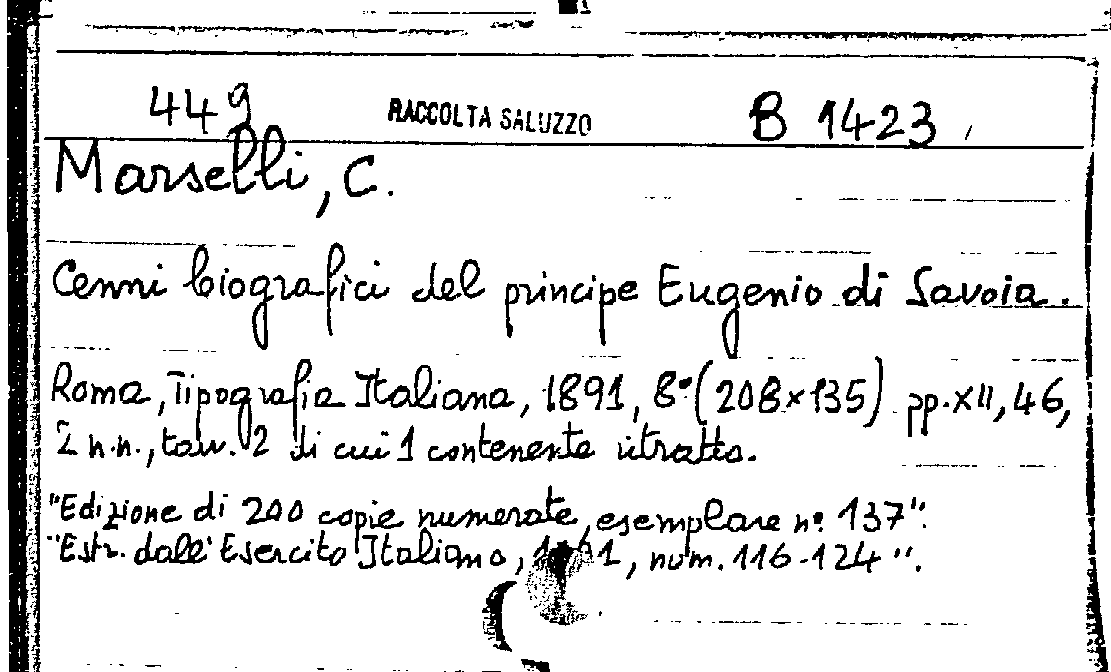 449 RACCOLTA SALUZZO B 1423
Marselli, C.
Cenni biografici del principe Eugenio di Savoia.
Roma, Tipografia Italiana, 1891, 8° (208×135) pp. XII, 46,
2 n.n., tav. 2 di cui 1 contenente ritratto.
"Edizione di 200 copie numerate, esemplare n° 137".
"Estr. dall'Esercito Italiano, num. 116-124".